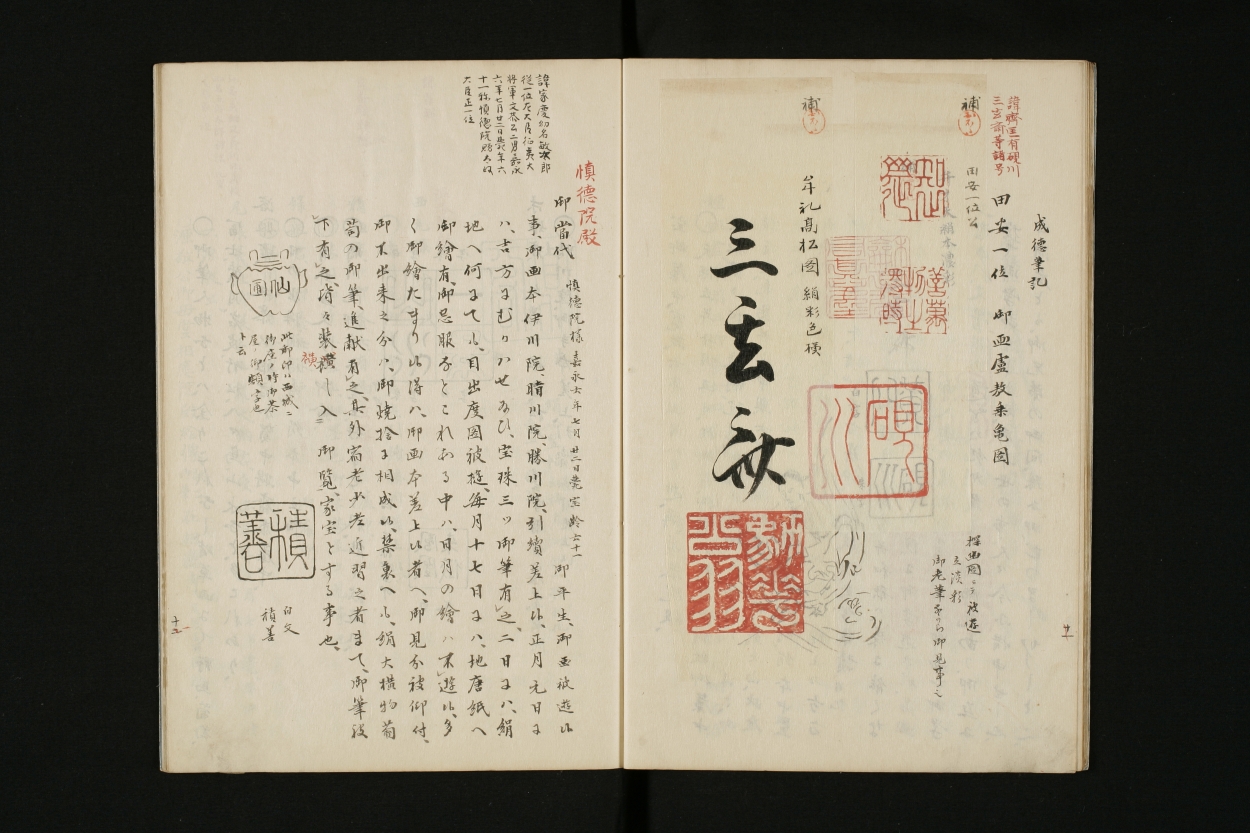 諱齊匡有硯川
三玄齋等諸号
成德筆記
田安一位 御画蘆敷来亀図
補
田安一位公
探幽圖ニテ被遊
立淡彩
御老筆ながら御見事之
硯川
補
牟礼高松図 絹彩色横
三玄齋
慎德院殿
諱家慶幼名敏次郎
從一位左大臣征夷大
將軍文恭公二男嘉永
六年七月廿二日薨年六
十一称慎德院贈太政
大臣正一位
御當代 慎德院様 嘉永六年七月廿二日薨 宝齢六十一 御平生、御画被遊候
事、御画本伊川院、晴川院、勝川院、引續差上候、正月元日ニ
ハ、吉方にむかハせ給ひ、宝珠三ツ御筆有之、二日にハ、絹
地へ何にても、目出度図被遊、毎月十七日にハ、地唐紙へ
御繪有、御忌服などこれある中ハ、日月の繪ハ不遊候、多
く御繪たまり候得ハ、御画本差上候者へ、御見分被仰付、
御不出来之分ハ、御焼捨に相成候、禁裏へも、絹大横物菊
萄の御筆、進献有之、其外宿老少老近習之者まで、御筆被
下有之、時々装潢し入 御覧、家宝とする事也、
潢
仙圃
此御印ハ西城ニ
御座ノ時御茶
屋ノ御額字也
ト云
積善
白文
積善
十一
十二